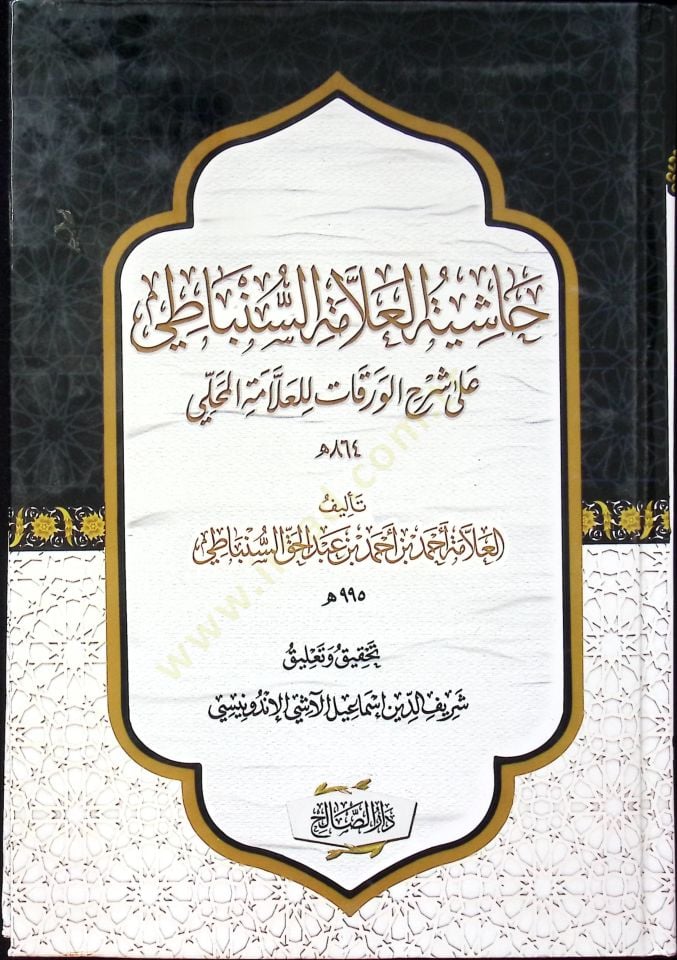 حَاشِيَةُ العَلَّامَةِ السُّنْبَاطِي
عَلَى شَرْحِ الوَرَقَاتِ لِلعَلَّامَةِ المَحَلِّي
٨٦٤هـ
تَأليفُ
العَلَّامَة أَحْمَد بْن أَحْمَد بْن عَبْد الحَقِّ السُّنْبَاطِي
٩٩٥هـ
تَحْقِيقُ وَتَعْلِيقُ
شَرِيف الدِّين إِسْمَاعِيل الآشِي الإِنْدُونِيسِي
دَارُ الصَّالِح